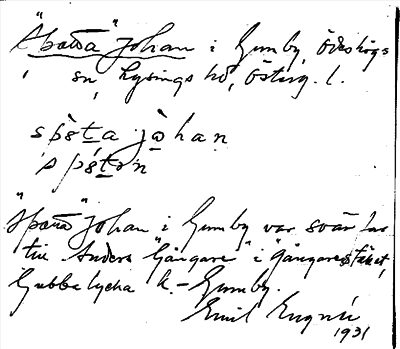 "Spätta" Johan i Gumby, Ödeshögs
sn, Lysings hd, Österg. l.
spèta jòhan
spétən
"Spätta" Johan i Gumby var svärfar
till Anders "Gångare" i "Gångare"stället,
Gubbalycka h. - Gumby.
Emil
1931